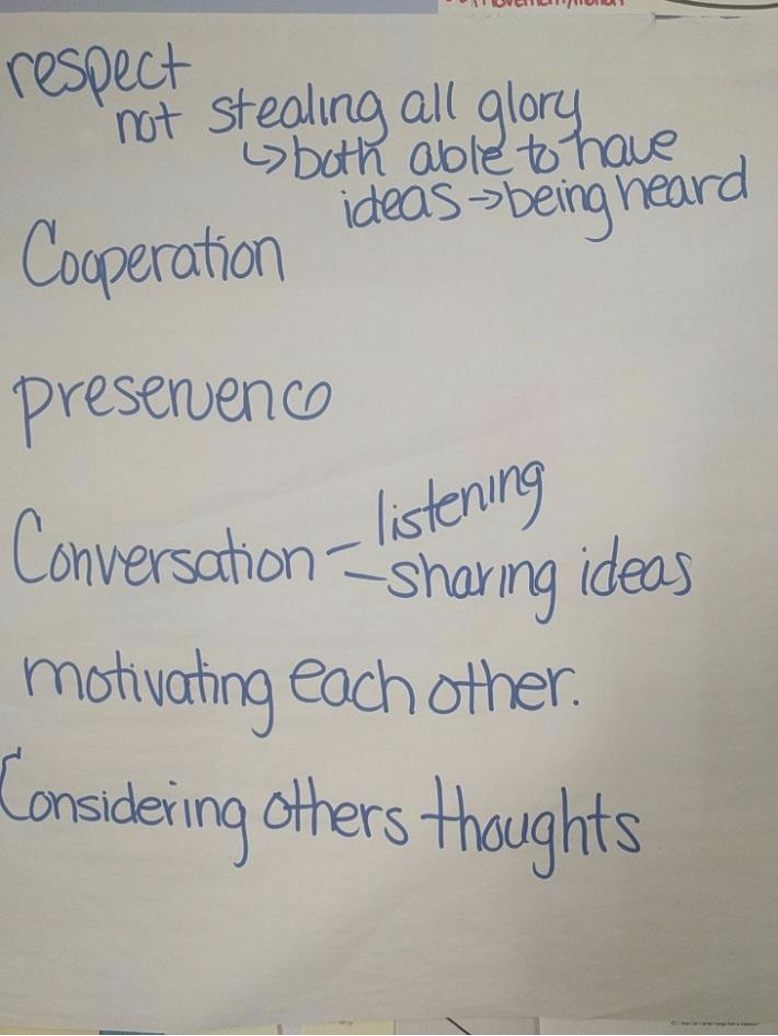 respect
not stealing all glory
↳ both able to have
ideas → being heard
Cooperation
preservenco
Conversation - listening
- sharing ideas
motivating each other.
Considering others thoughts